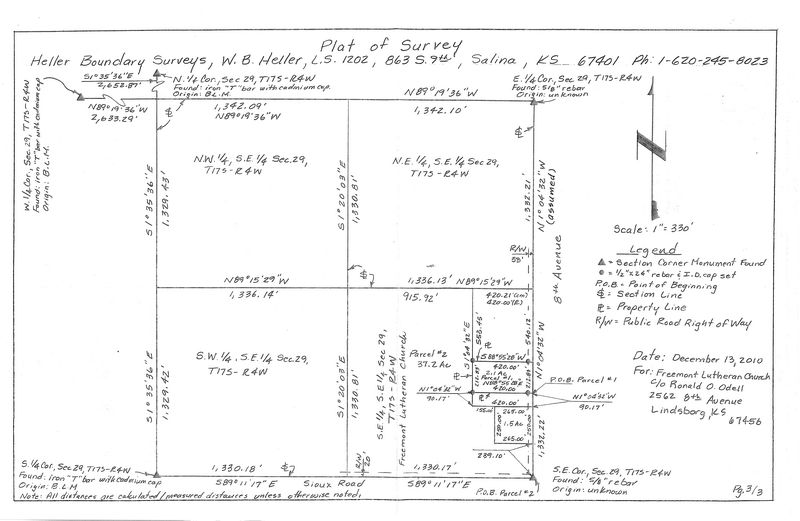 Plat of Survey
Heller Boundary Surveys, W. B. Heller, L.S. 1202, 863 S. 9th, Salina, KS 67401 Ph: 1-620-245-8023
S1°35'36"E
2,652.87'
N. 1/4 Cor., Sec 29, T17S-R4W
Found: iron "T" bar with cadmium cap.
Origin: B.L.M.
E. 1/4 Cor, Sec 29, T17S-R4W
Found: 5/8" rebar
Origin: unknown
W. 1/4 Cor, Sec 29, T17S-R4W
Found: iron "T" bar with cadmium cap
Origin: B.L.M.
N89°19'36"W
2,633.29'
1,342.09'
N89°19'36"W
N89°19'36"W
1,342.10'
N.W. 1/4, S.E. 1/4 Sec. 29,
T17S-R4W
N.E. 1/4, S.E. 1/4 Sec 29,
T17S-R4W
S1°35'36"E
1,329.43'
S1°20'03"E
1,330.81'
1,332.21'
N1°04'32"W
(assumed)
Scale: 1"=330'
R/W
8th Avenue
Legend
= Section Corner Monument Found
= 1/2"x24" rebar & I.D. cap set
P.O.B. = Point of Beginning
= Section Line
= Property Line
R/W = Public Road Right of Way
N89°15'29"W
1,336.14'
1,336.13' N89°15'29"W
915.92'
420.21'(cm)
420.00'(R)
S1°04'32"E
553.45'
540.12'
S88°55'28"W
420.00'
2.1 Ac
Parcel #1
N88°55'28"E
420.00
420.00'
Parcel #2
37.2 Ac
N1°04'32"W
90.17'
P.O.B. Parcel #1
N1°04'32"W
90.17'
155.0'
265.00'
250.00'
1.5 Ac
250.00'
265.00'
239.10'
N1°04'32"W
1,332.22'
S.W. 1/4, S.E. 1/4 Sec. 29,
T17S-R4W
S1°35'36"E
1,329.42'
S1°20'03"E
1,330.81'
S.E. 1/4, S.E. 1/4 Sec 29,
T17S-R4W
Freemont Lutheran Church
Date: December 13, 2010
For: Freemont Lutheran Church
c/o Ronald O. Odell
2562 8th Avenue
Lindsborg, KS
67456
S. 1/4 Cor, Sec 29, T17S-R4W
Found: iron "T" bar with cadmium cap
Origin: B.L.M
1,330.18'
S89°11'17"E
Sioux Road
R/W
20'
1,330.17'
S89°11'17"E
P.O.B. Parcel #2
S.E. Cor, Sec 29, T17S-R4W
Found: 5/8" rebar
Origin: unknown
Note: All distances are calculated/measured distances unless otherwise noted.
Pg. 3/3